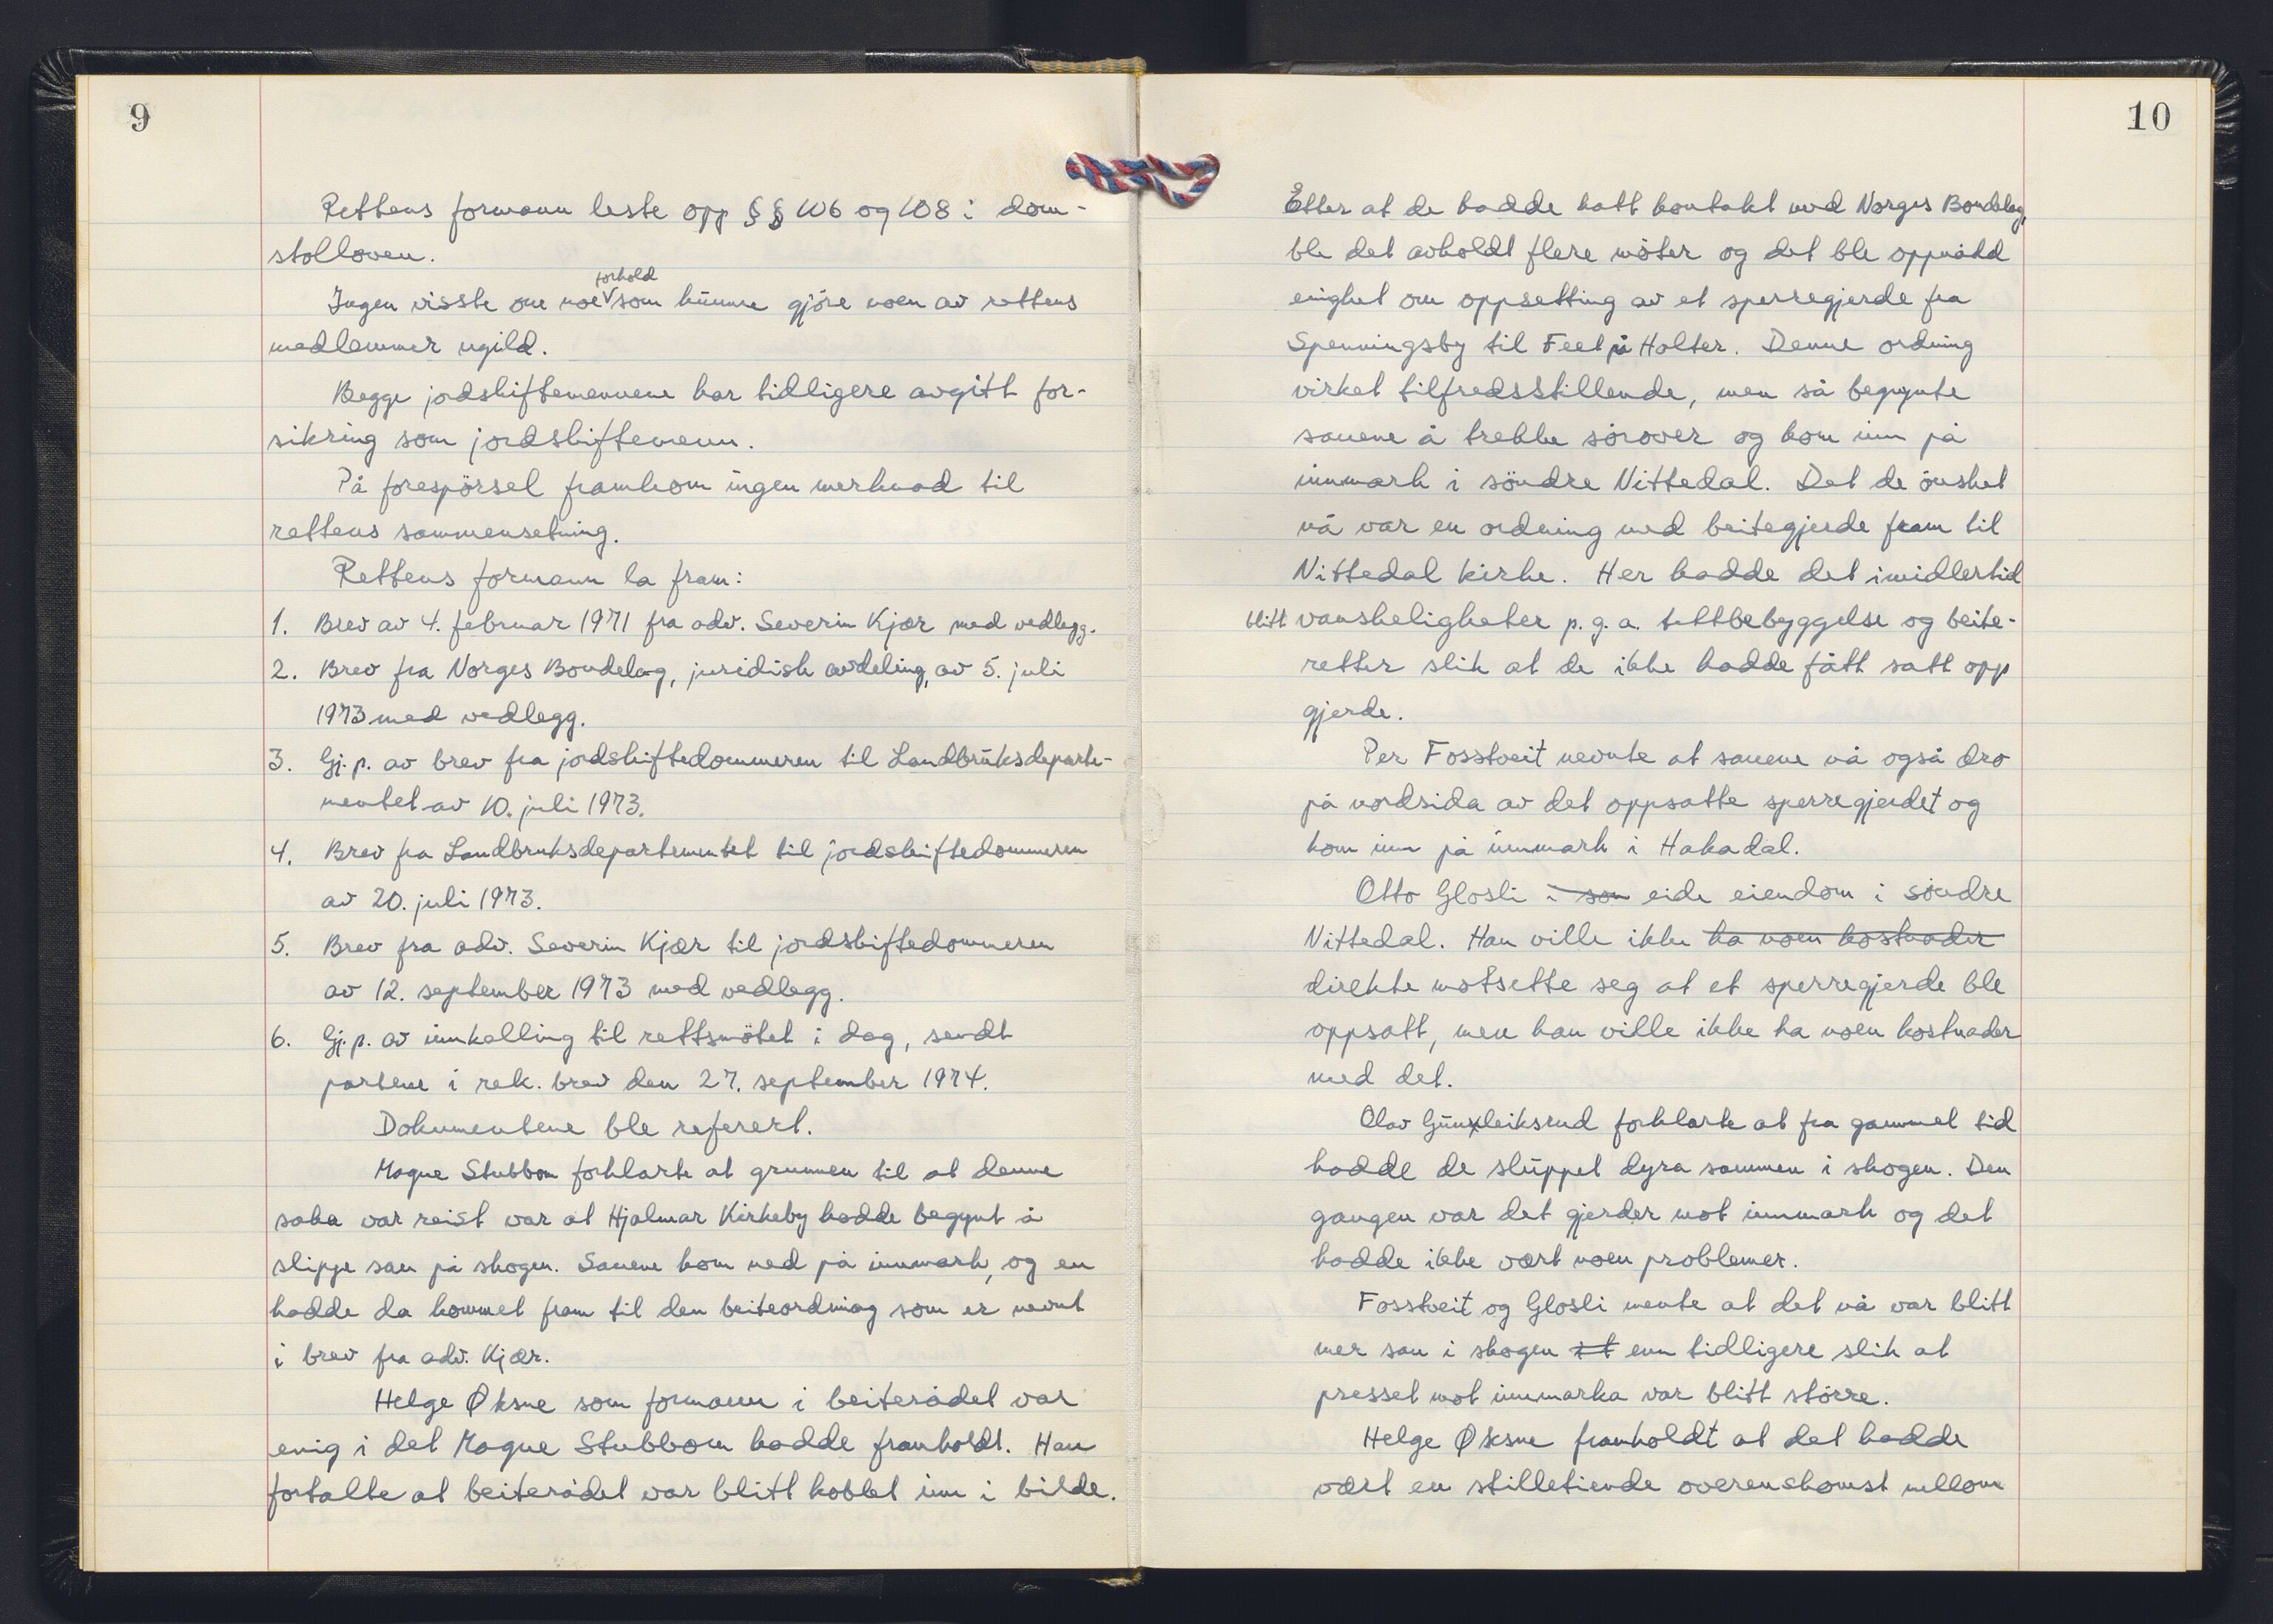 9
Rettens formann leste opp §§ 106 og 108 i dom-
stolloven.
forhold
Ingen visste om noe som kunne gjöre noen av rettens
medlemmer ugild.
Begge jordskiftemennene har tidligere avgitt for-
sikring som jordskiftemenn.
På forespörsel framkom ingen merknad til
rettens sammensetning.
Rettens formann la fram:
1. Brev av 4. februar 1971 fra adv. Severin Kjær med vedlegg.
2. Brev fra Norges Bondelag, juridisk avdeling, av 5. juli
1973 med vedlegg.
3. Gj.p. av brev fra jordskiftedommeren til Landbruksdeparte-
mentet av 10. juli 1973.
4. Brev fra Landbruksdepartementet til jordskiftedommeren
av 20. juli 1973.
5. Brev fra adv. Severin Kjær til jordskiftedommeren
av 12. september 1973 med vedlegg.
6. Gj.p. av innkalling til rettsmötet i dag, sendt
partene i rek. brev den 27. september 1974.
Dokumentene ble referert.
Magne Stubbom forklarte at grunnen til at denne
saka var reist var at Hjalmar Kirkeby hadde begynt å
slippe sau på skogen. Sauene kom ned på innmark, og en
hadde da kommet fram til den beiteordning som er nevnt
i brev fra adv. Kjær.
Helge Øksne som formann i beiterådet var
enig i det Magne Stubbom hadde framholdt. Han
fortalte at beiterådet var blitt koblet inn i bilde.
10
Etter at de hadde hatt kontakt med Norges Bondelag,
ble det avholdt flere möter og det ble oppnådd
enighet om oppsetting av et sperregjerde fra
Spenningsby til Feet på Holter. Denne ordning
virket tilfredsstillende, men så begynte
sauene å trekke sörover og kom inn på
innmark i söndre Nittedal. Det de önsket
nå var en ordning med beitegjerde fram til
Nittedal kirke. Her hadde det imidlertid
blitt vanskeligheter p.g.a. tettbebyggelse og beite-
retter slik at de ikke hadde fått satt opp
gjerde.
Per Fosstveit nevnte at sauene nå også dro
på nordsida av det oppsatte sperregjerdet og
kom inn på innmark i Hakadal.
Otto Glosli i som eide eiendom i söndre
Nittedal. Han ville ikke ha noen kostnader
direkte motsette seg at et sperregjerde ble
oppsatt, men han ville ikke ha noen kostnader
med det.
Olav Gunnleiksrud forklarte at fra gammel tid
hadde de sluppet dyra sammen i skogen. Den
gangen var det gjerder mot innmark og det
hadde ikke vært noen problemer.
Fosstveit og Glosli mente at det nå var blitt
mer sau i skogen enn tidligere slik at
presset mot innmarka var blitt större.
Helge Øksne framholdt at det hadde
vært en stilletiende overenskomst mellom